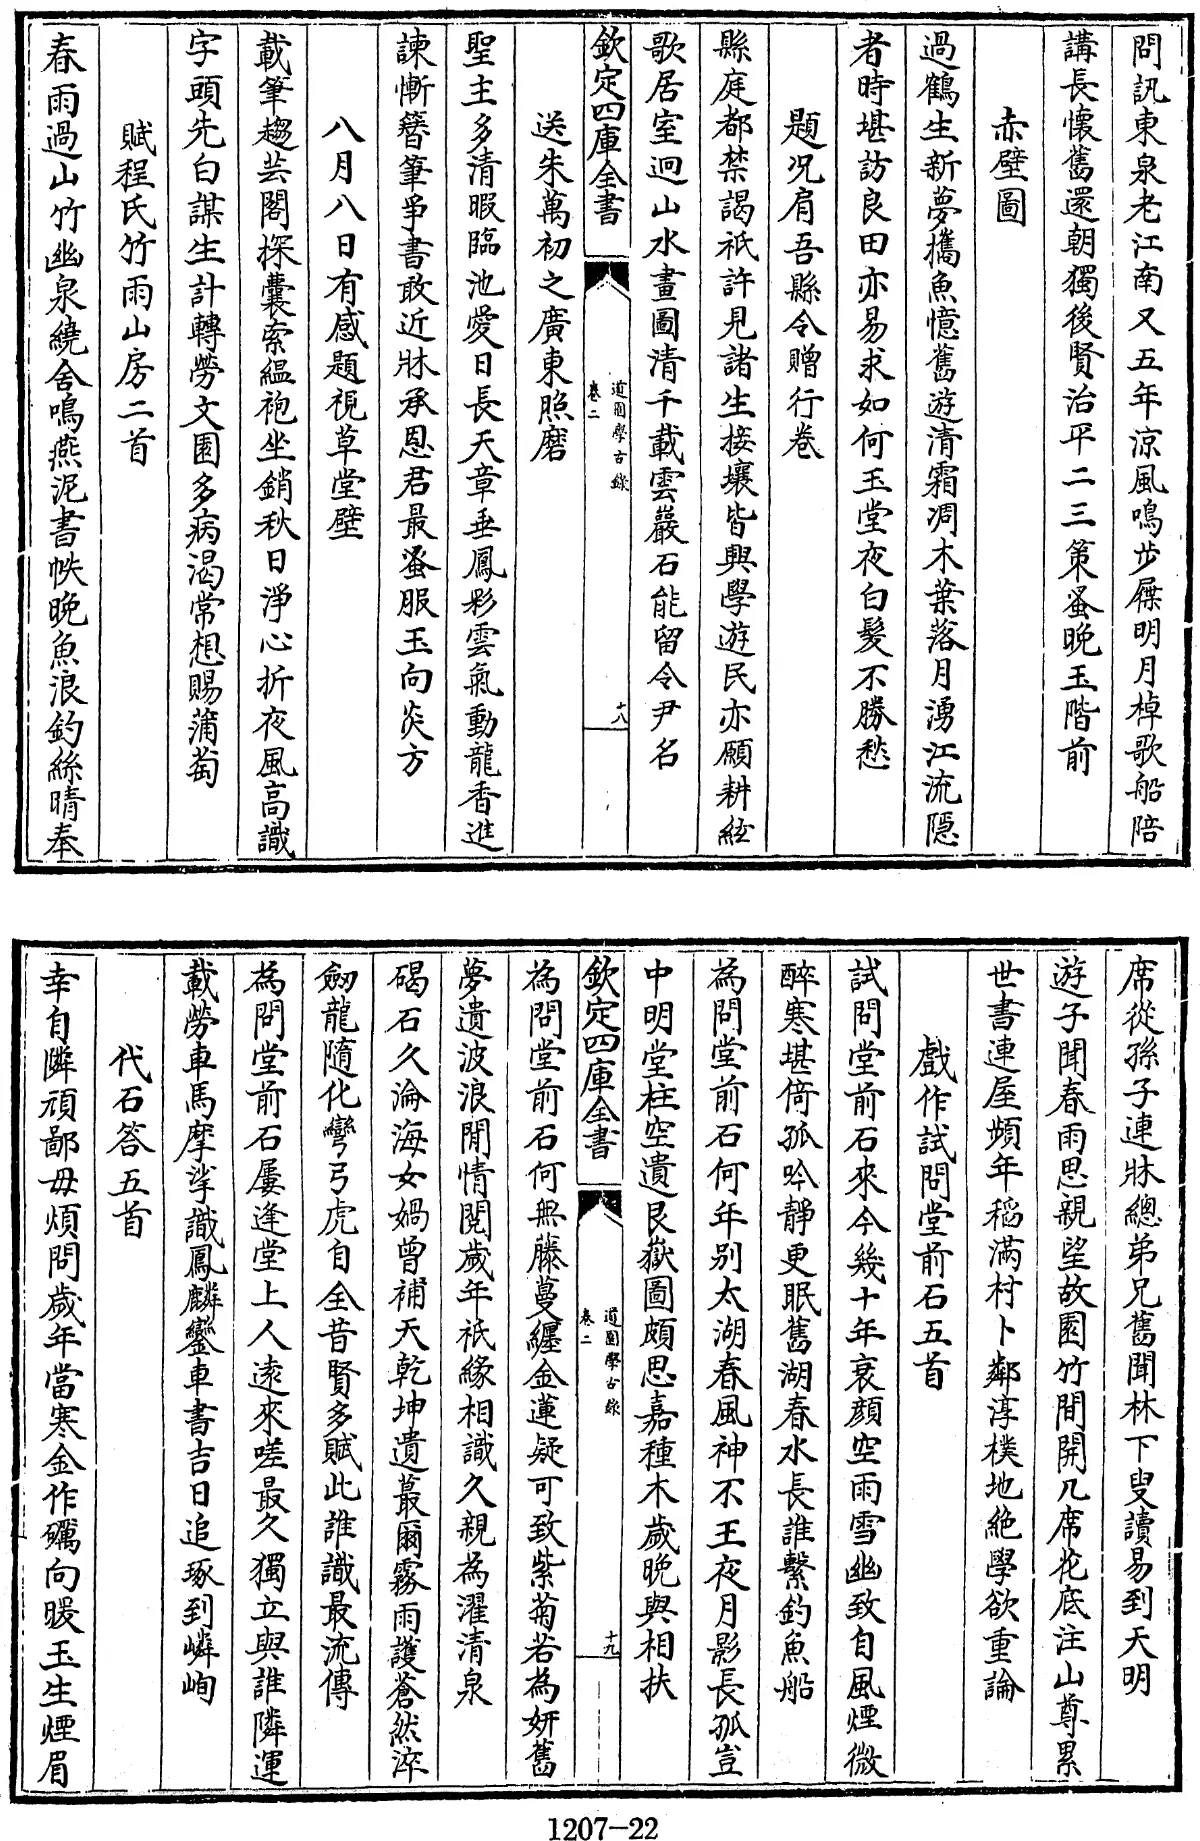 問訊東泉老江南又五年涼風鳴步屧明月棹歌船陪
講長懷舊還朝獨後賢治平二三策蚤晚玉階前
赤壁圖
過鶴生新夢攜魚憶舊遊清霜凋木葉落月湧江流隱
者時堪訪良田亦易求如何玉堂夜白髮不勝愁
題況肩吾縣令贈行卷
縣庭都禁謁祇許見諸生接壤皆興學遊民亦願耕絃
歌居室迥山水畫圖清千載雲巖石能留令尹名
欽定四庫全書
道園學古錄
卷二
十八
送朱萬初之廣東照磨
聖主多清暇臨池愛日長天章垂鳳彩雲氣動龍香進
諫慚簪筆爭書敢近牀承恩君最蚤服玉向炎方
八月八日有感題視草堂壁
載筆趨芸閣探囊索縕袍坐銷秋日淨心折夜風高識
字頭先白謀生計轉勞文園多病渴常想賜蒲萄
賦程氏竹雨山房二首
春雨過山竹幽泉繞舍鳴燕泥書帙晚魚浪釣絲晴奉
席從孫子連牀總弟兄舊聞林下叟讀易到天明
遊子聞春雨思親望故園竹間開几席花底注山尊累
世書連屋頻年稻滿村卜鄰淳樸地絶學欲重論
戲作試問堂前石五首
試問堂前石來今幾十年衰顔空雨雪幽致自風煙微
醉寒堪倚孤吟靜更眠舊湖春水長誰繫釣魚船
為問堂前石何年别太湖春風神不王夜月影長孤豈
中明堂柱空遺艮嶽圖頗思嘉種木歲晚與相扶
欽定四庫全書
道園學古錄
卷二
十九
為問堂前石何無藤蔓纏金蓮疑可致紫菊若為妍舊
夢遺波浪閒情閱歲年祇緣相識久親為濯清泉
碣石久淪海女媧曾補天乾坤遺蕞爾霧雨護蒼然淬
劒龍隨化彎弓虎自全昔賢多賦此誰識最流傳
為問堂前石屢逢堂上人逺來嗟最久獨立與誰隣運
載勞車馬摩挲識鳳麟鑾車書吉日追琢到嶙峋
代石答五首
幸自隣頑鄙毋煩問歲年當寒金作礪向暖玉生煙眉
1207-22